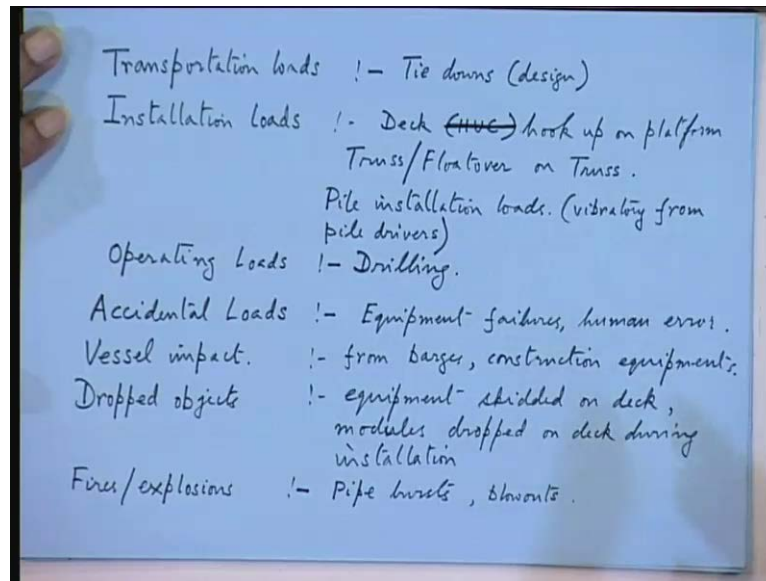 Transportation loads :- Tie downs (design)
Installation Loads :- Deck (HUC) hook up on platform
Truss/Floatover on Truss.
Pile installation loads. (vibratory from
pile drivers)
Operating Loads :- Drilling.
Accidental Loads :- Equipment failures, human error.
Vessel impact. :- from barges, construction equipments.
Dropped objects :- equipment skidded on deck,
modules dropped on deck during
installation
Fires/explosions :- Pipe bursts, blowouts.